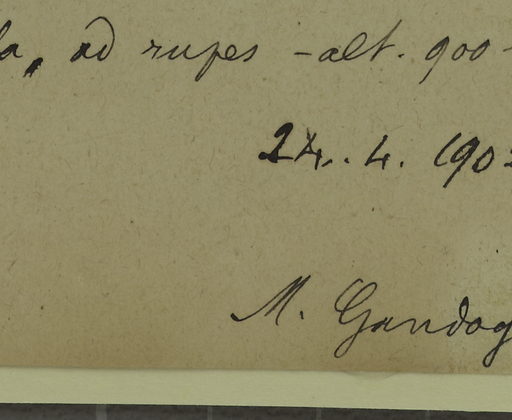 la, ad rupes - alt. 900 -
24. 4. 190
M. Gandog